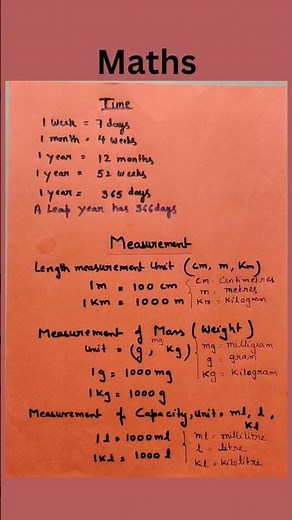 Maths
Time
1 week = 7 days
1 month = 4 weeks
1 year = 12 months
1 year = 52 weeks
1 year = 365 days
A Leap year has 366 days
Measurement
Length measurement Unit (cm, m, Km)
1 m = 100 cm
1 Km = 1000 m
cm - Centimetres
m = metres
Km = Kilogram
Measurement of Mass (Weight)
Unit = (g, mg Kg)
1 g = 1000 mg
1 Kg = 1000 g
mg = milligram
g = gram
Kg = Kilogram
Measurement of Capacity, unit = ml, l, Kl
1 l = 1000 ml
1 Kl = 1000 l
ml = millilitre
l = litre
Kl = Kilolitre